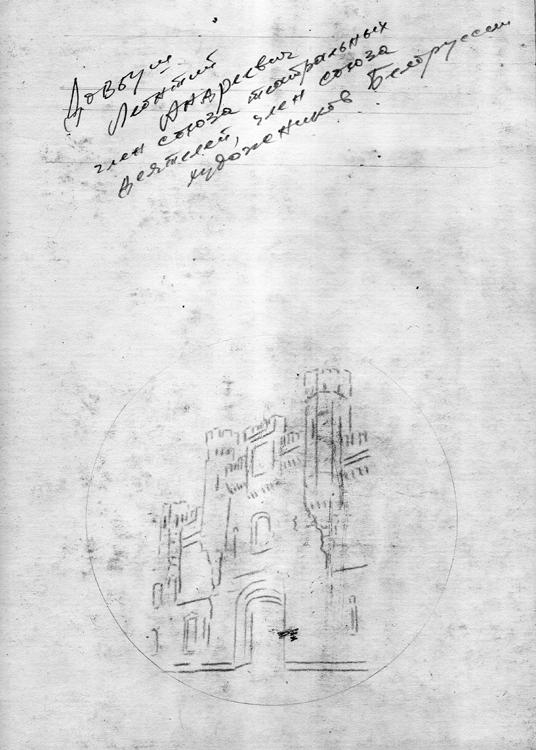 Довбуш
Леонтий
Андреевич
член союза театральных
деятелей, член союза
художников Белоруссии